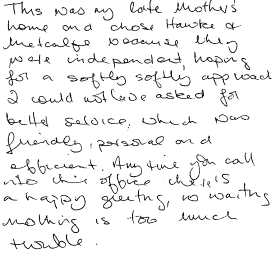 This was my late Mother's
home and chose Hawke &
Metcalfe because they
were independent, hoping
for a softly softly approach
I could not have asked for
better service, which was
friendly, personal and
efficient. Any time you call
into their office there's
a happy greeting, no waiting
nothing is too much
trouble.